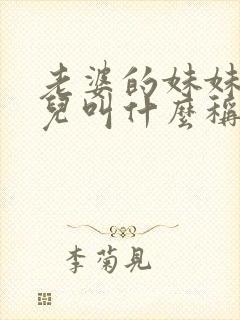 老婆的妹妹
兒叫什麼稱
李菊見